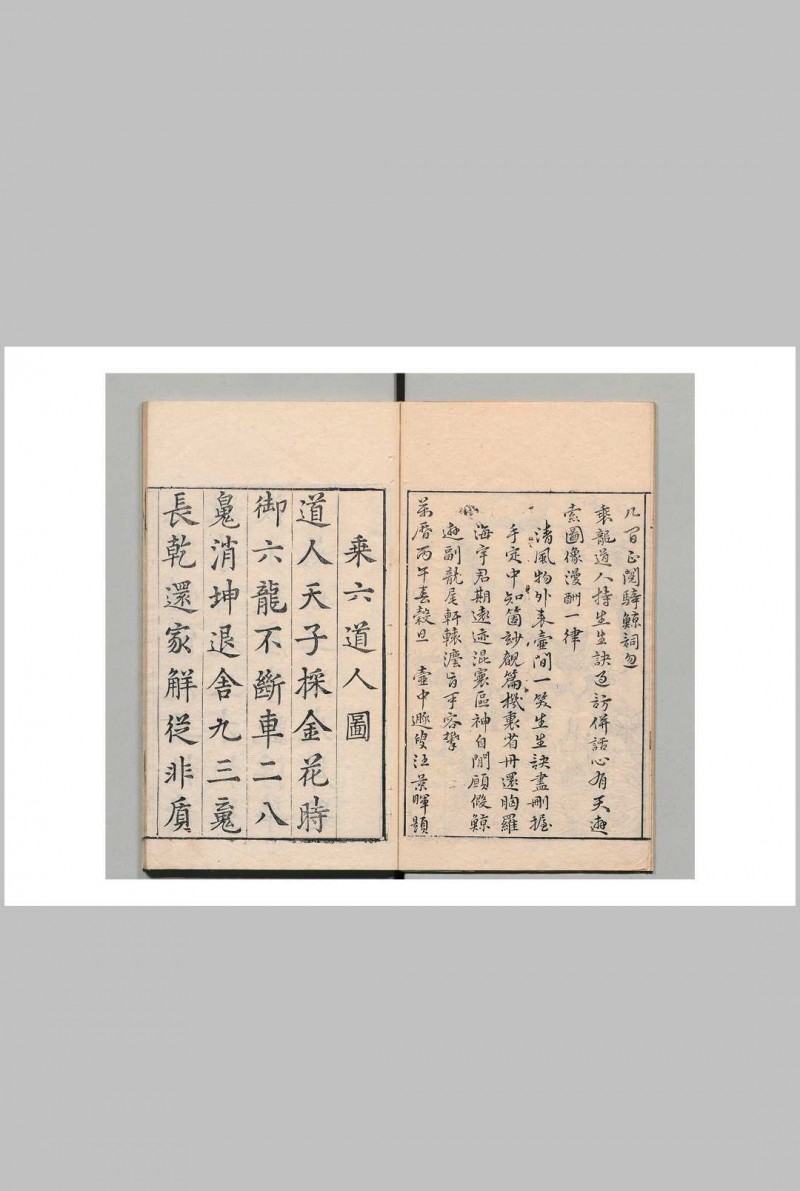 几間正閱騎鯨詞忽
乘龍道人持生生訣過訪併話心有天遊
索圖像漫酬一律
清風物外表壺間一笑生生訣盡刪握
手定中知箇玅觀篇機裏省丹還胸羅
海宇君期遠迹混寰區神自閒顧假鯨
遊副龍尾軒轅濃旨手容攀
萬曆丙午春穀旦 壺中遯叟汪景暉題
乘六道人圖
道人天子採金花時
御六龍不斷車二八
消坤退舍九三
長乾還家解從非質